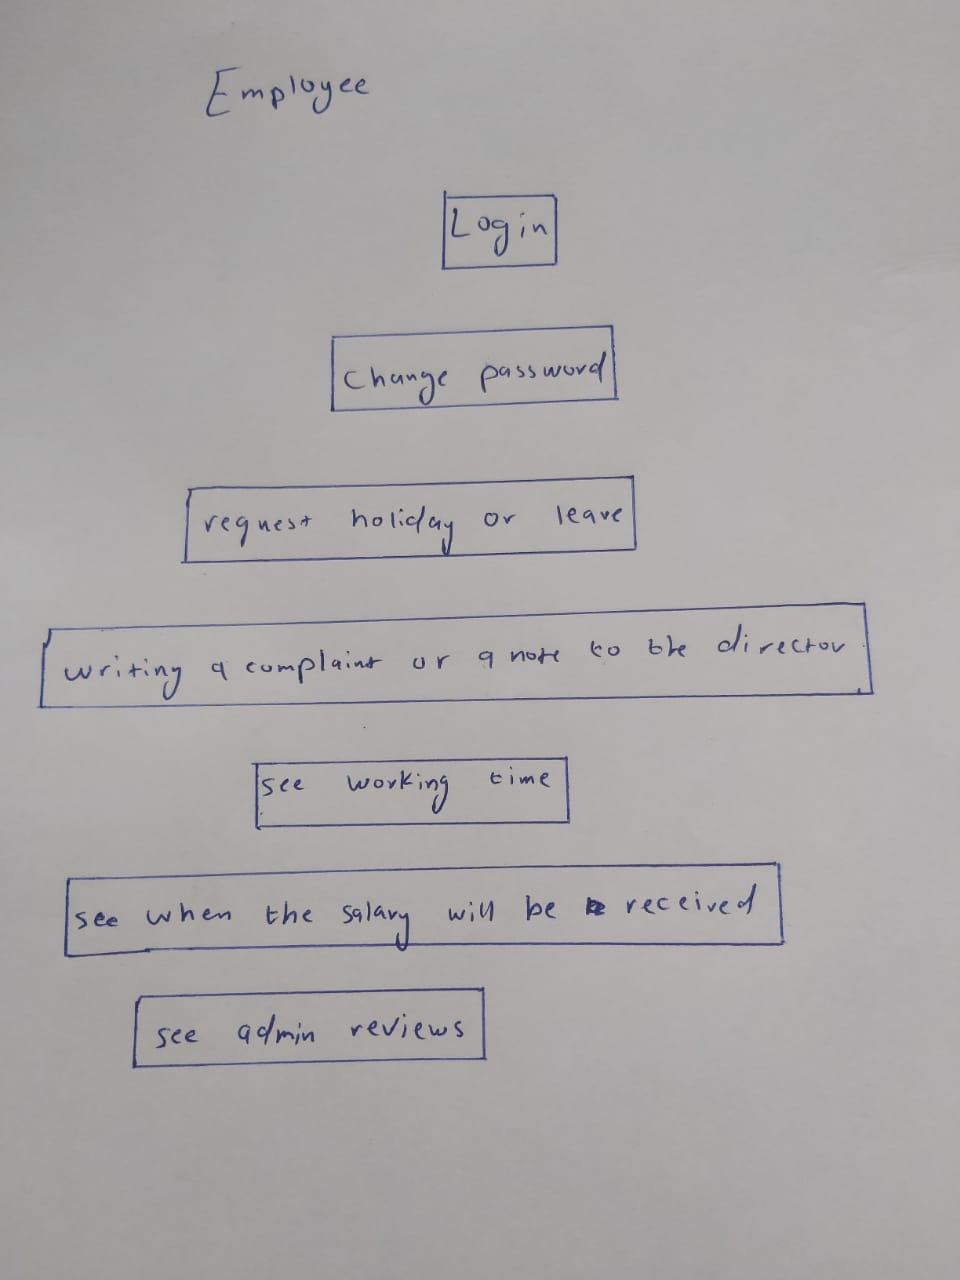 Employee
Login
Change password
request holiday or leave
writing a complaint or a note to the director
see working time
see when the salary will be received
see admin reviews